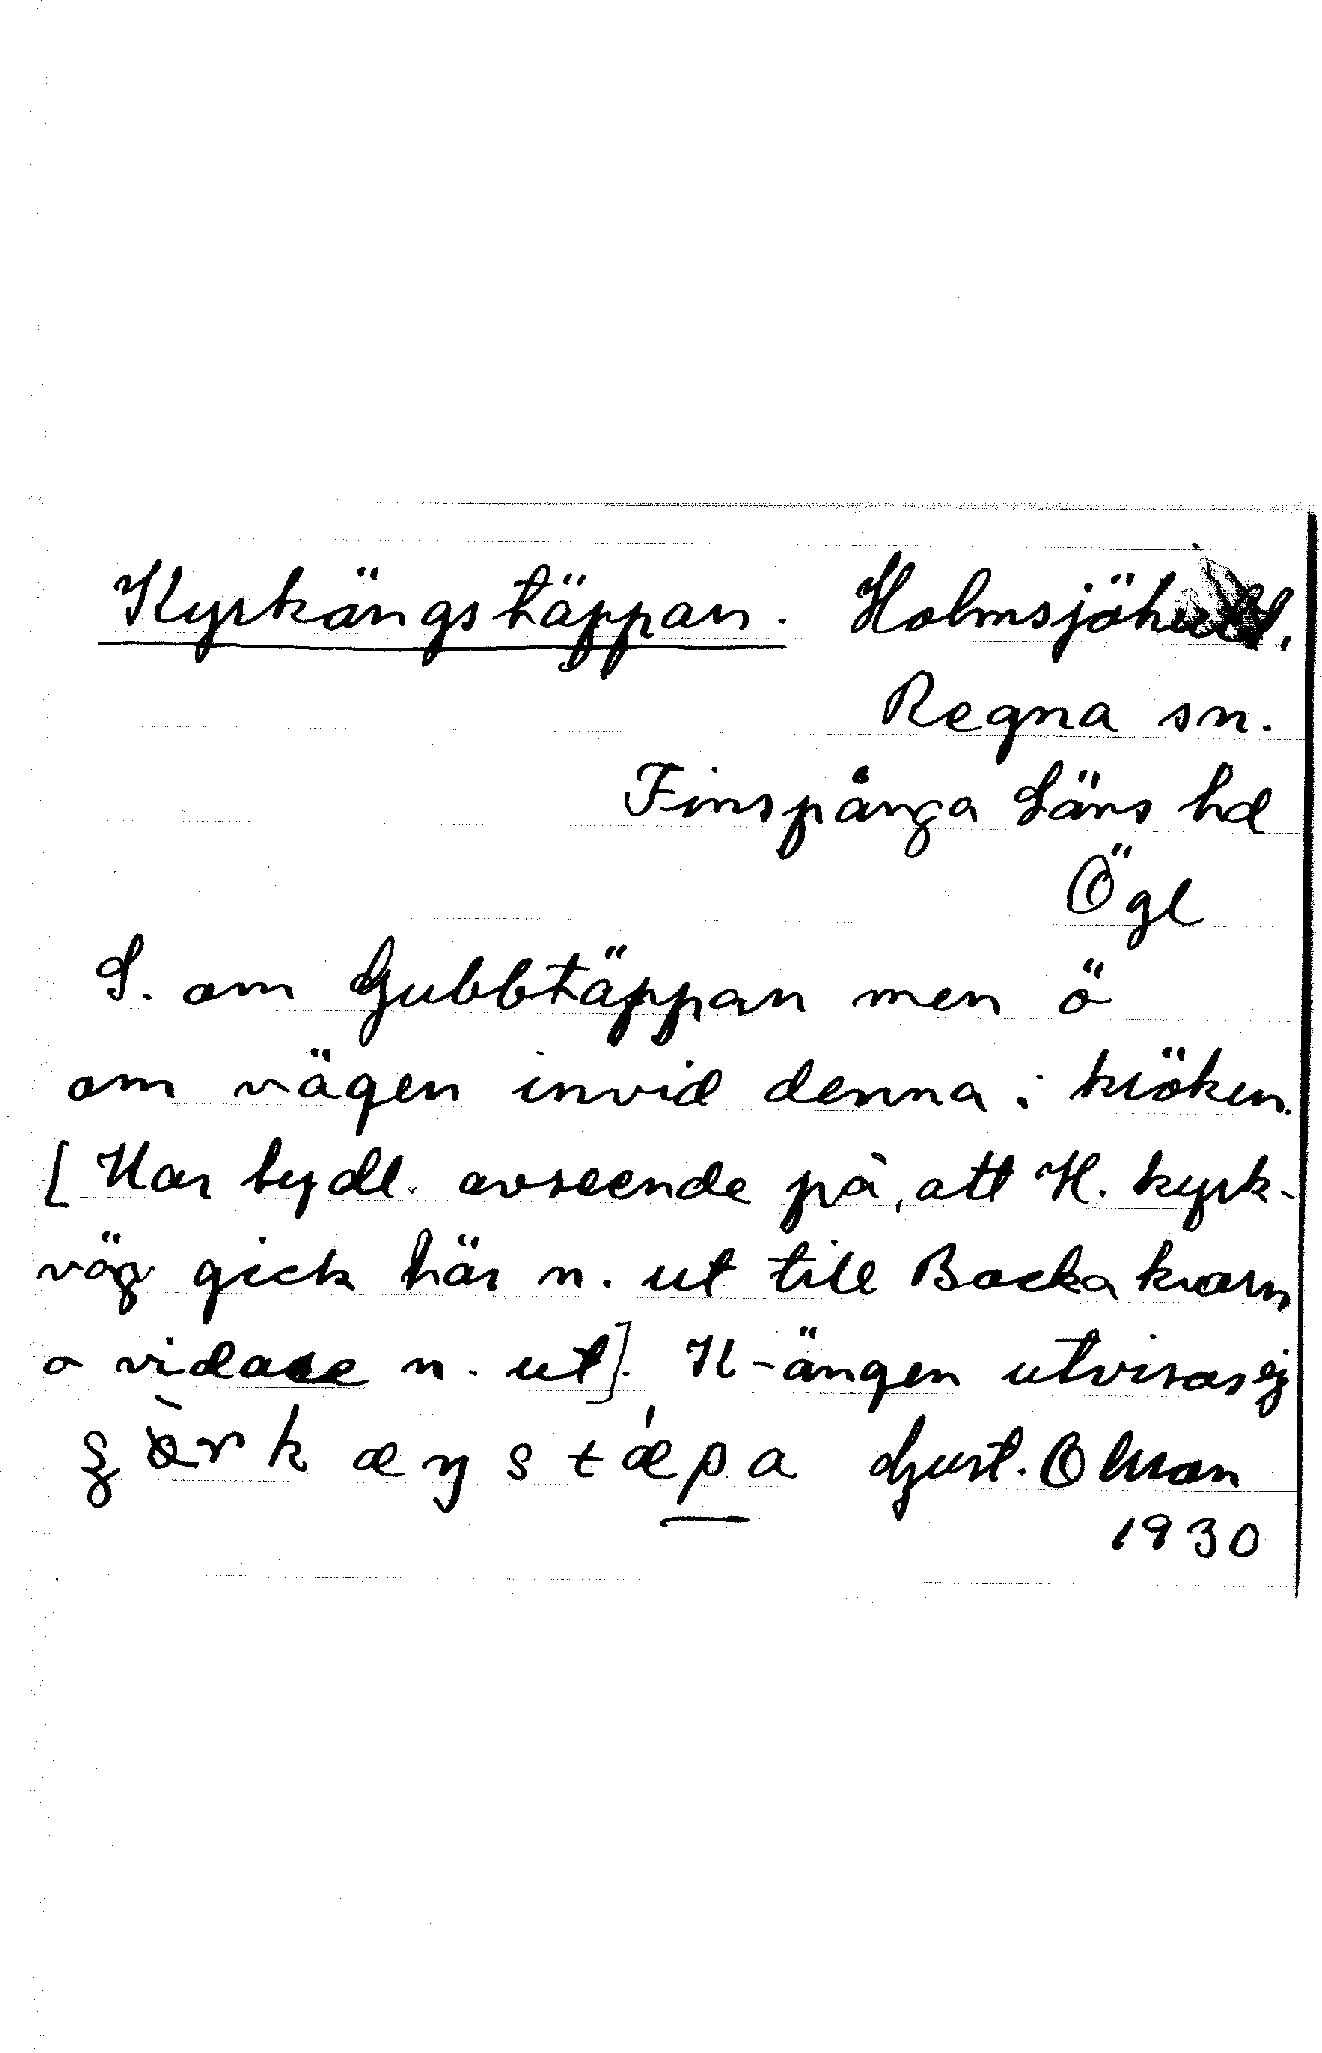 Kyrkängstäppan. Holmsjöhult.
Regna sn.
Finspånga Läns hd
Ögl
S. om Gubbtäppan men ö
om vägen invid denna i kröken.
[Har tydl. avseende på, att H. kyrk-
väg gick här n. ut till Backa kvarn
o vidare n. ut]. K-ängen utvisas ej
Gust. Olsson
1930